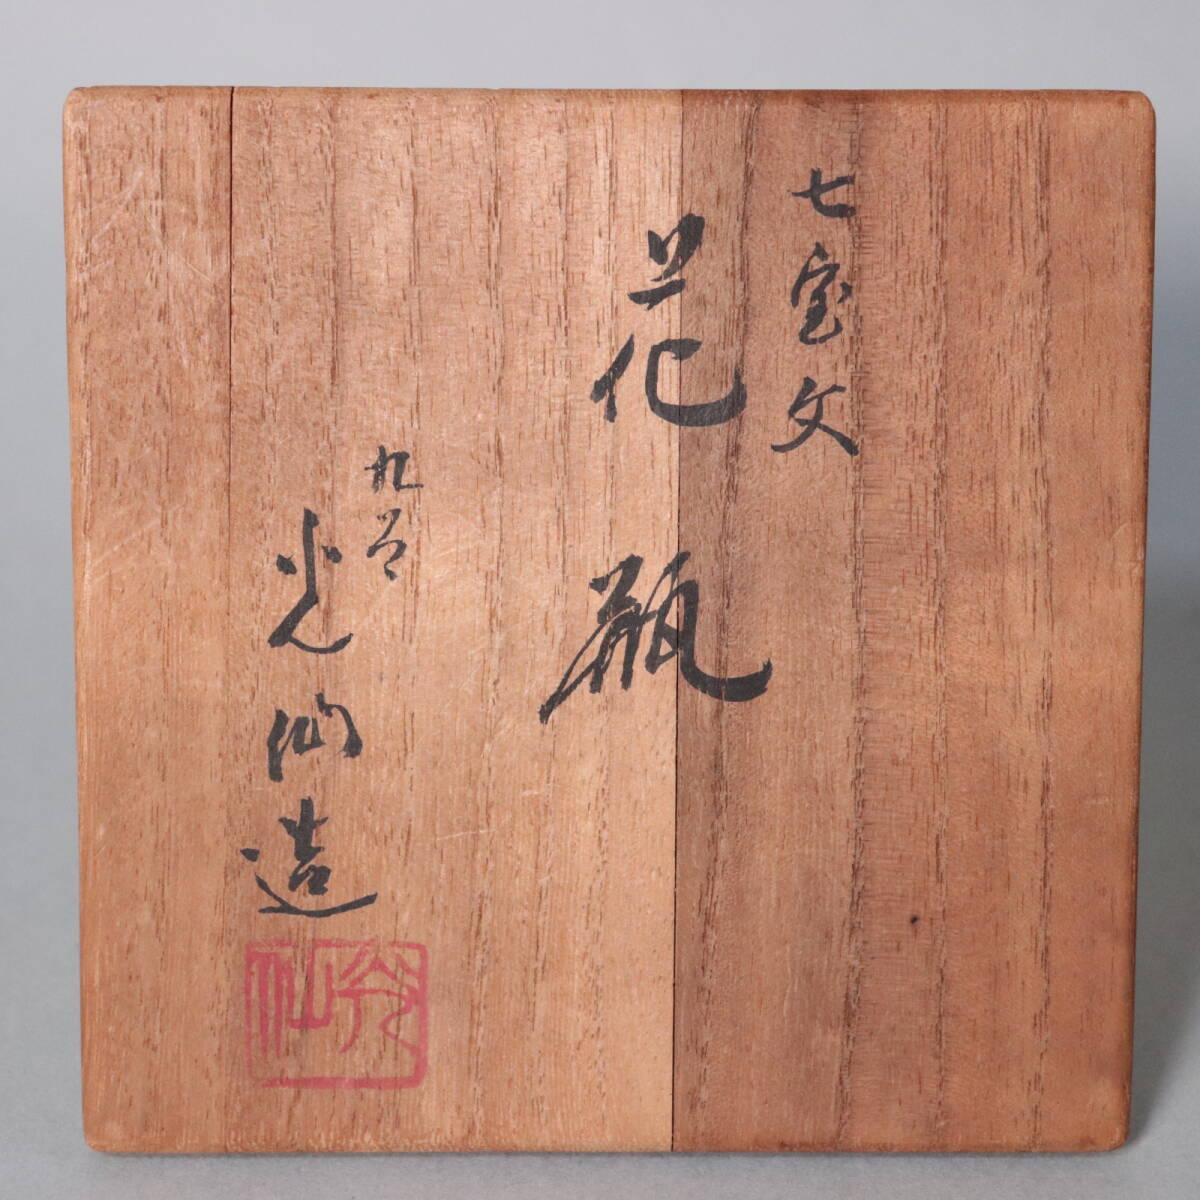 七宝文
花瓶
九谷
光仙造
光仙